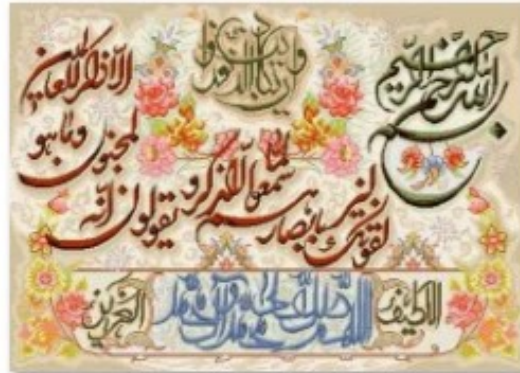 بسم الله الرحمن الرحيم
وان يكاد الذين كفروا
ليزلقونك بابصارهم لما سمعوا الذكر و يقولون انه
لمجنون وما هو
الا ذكر للعالمين
اللهم صل على محمد وآل محمد